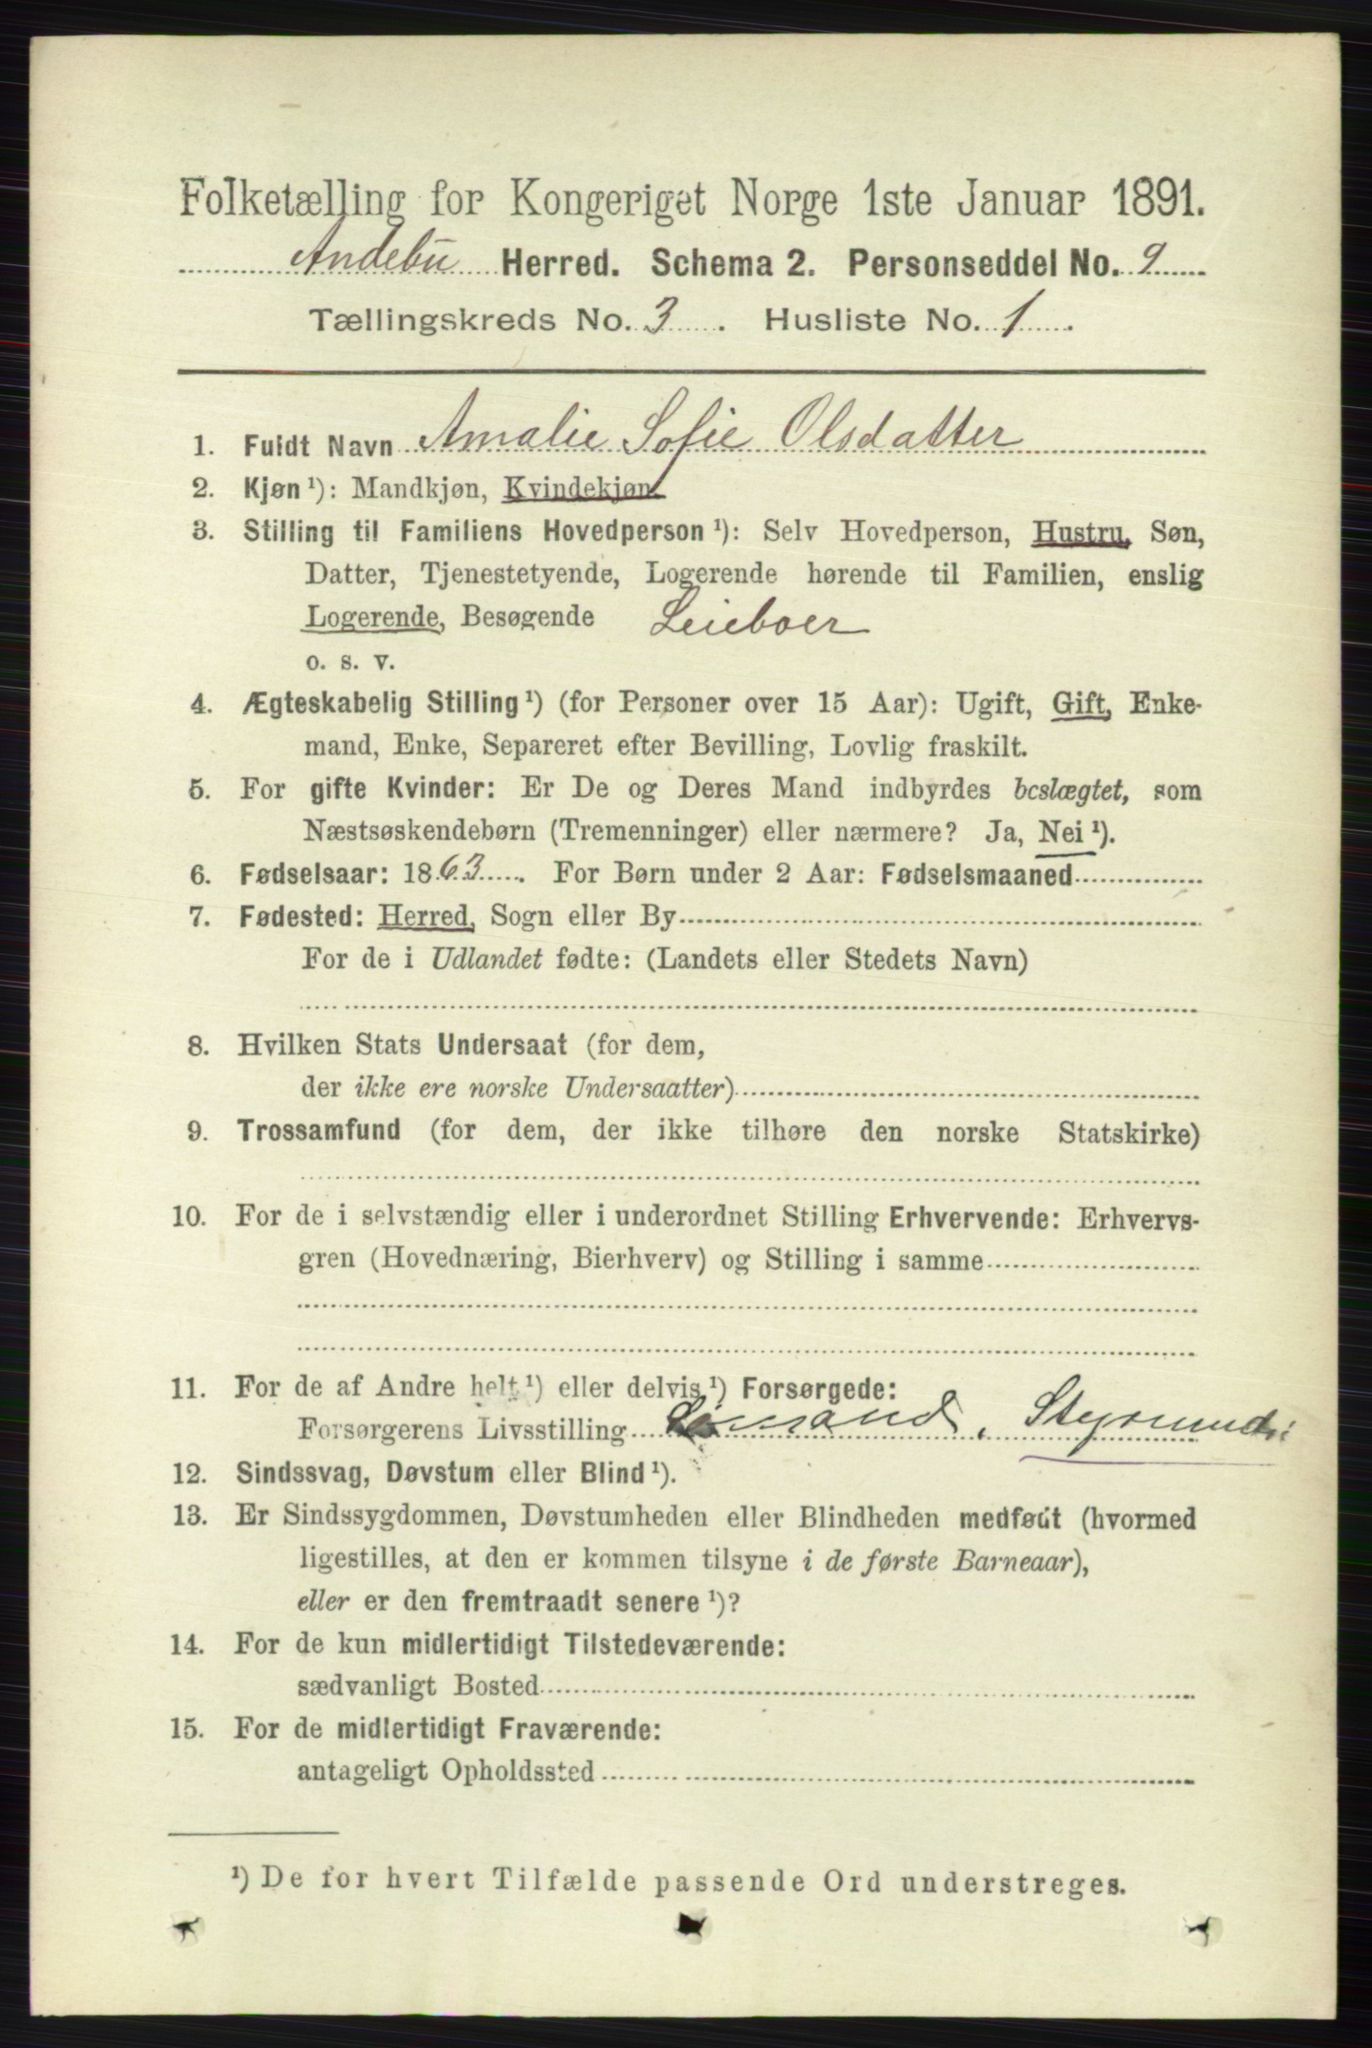 Folketælling for Kongeriget Norge 1ste Januar 1891.
Andebu Herred. Schema 2. Personseddel No. 9
Tællingskreds No. 3. Husliste No. 1.
1. Fuldt Navn Amalie Sofie Olsdatter
2. Kjøn ¹): Mandkjøn, Kvindekjøn
3. Stilling til Familiens Hovedperson ¹): Selv Hovedperson, Hustru, Søn,
Datter, Tjenestetyende, Logerende hørende til Familien, enslig
Logerende, Besøgende Leieboer
o. s. v.
4. Ægteskabelig Stilling ¹) (for Personer over 15 Aar): Ugift, Gift, Enke-
mand, Enke, Separeret efter Bevilling, Lovlig fraskilt.
5. For gifte Kvinder: Er De og Deres Mand indbyrdes beslægtet, som
Næstsøskendebørn (Tremenninger) eller nærmere? Ja, Nei ¹).
6. Fødselsaar: 1863. For Børn under 2 Aar: Fødselsmaaned
7. Fødested: Herred, Sogn eller By
For de i Udlandet fødte: (Landets eller Stedets Navn)
8. Hvilken Stats Undersaat (for dem,
der ikke ere norske Undersaatter)
9. Trossamfund (for dem, der ikke tilhøre den norske Statskirke)
10. For de i selvstændig eller i underordnet Stilling Erhvervende: Erhvervs-
gren (Hovednæring, Bierhverv) og Stilling i samme
11. For de af Andre helt ¹) eller delvis ¹) Forsørgede:
Forsørgerens Livsstilling Sømand,
12. Sindssvag, Døvstum eller Blind ¹).
13. Er Sindssygdommen, Døvstumheden eller Blindheden medfødt (hvormed
ligestilles, at den er kommen tilsyne i de første Barneaar),
eller er den fremtraadt senere ¹)?
14. For de kun midlertidigt Tilstedeværende:
sædvanligt Bosted
15. For de midlertidigt Fraværende:
antageligt Opholdssted
¹) De for hvert Tilfælde passende Ord understreges.